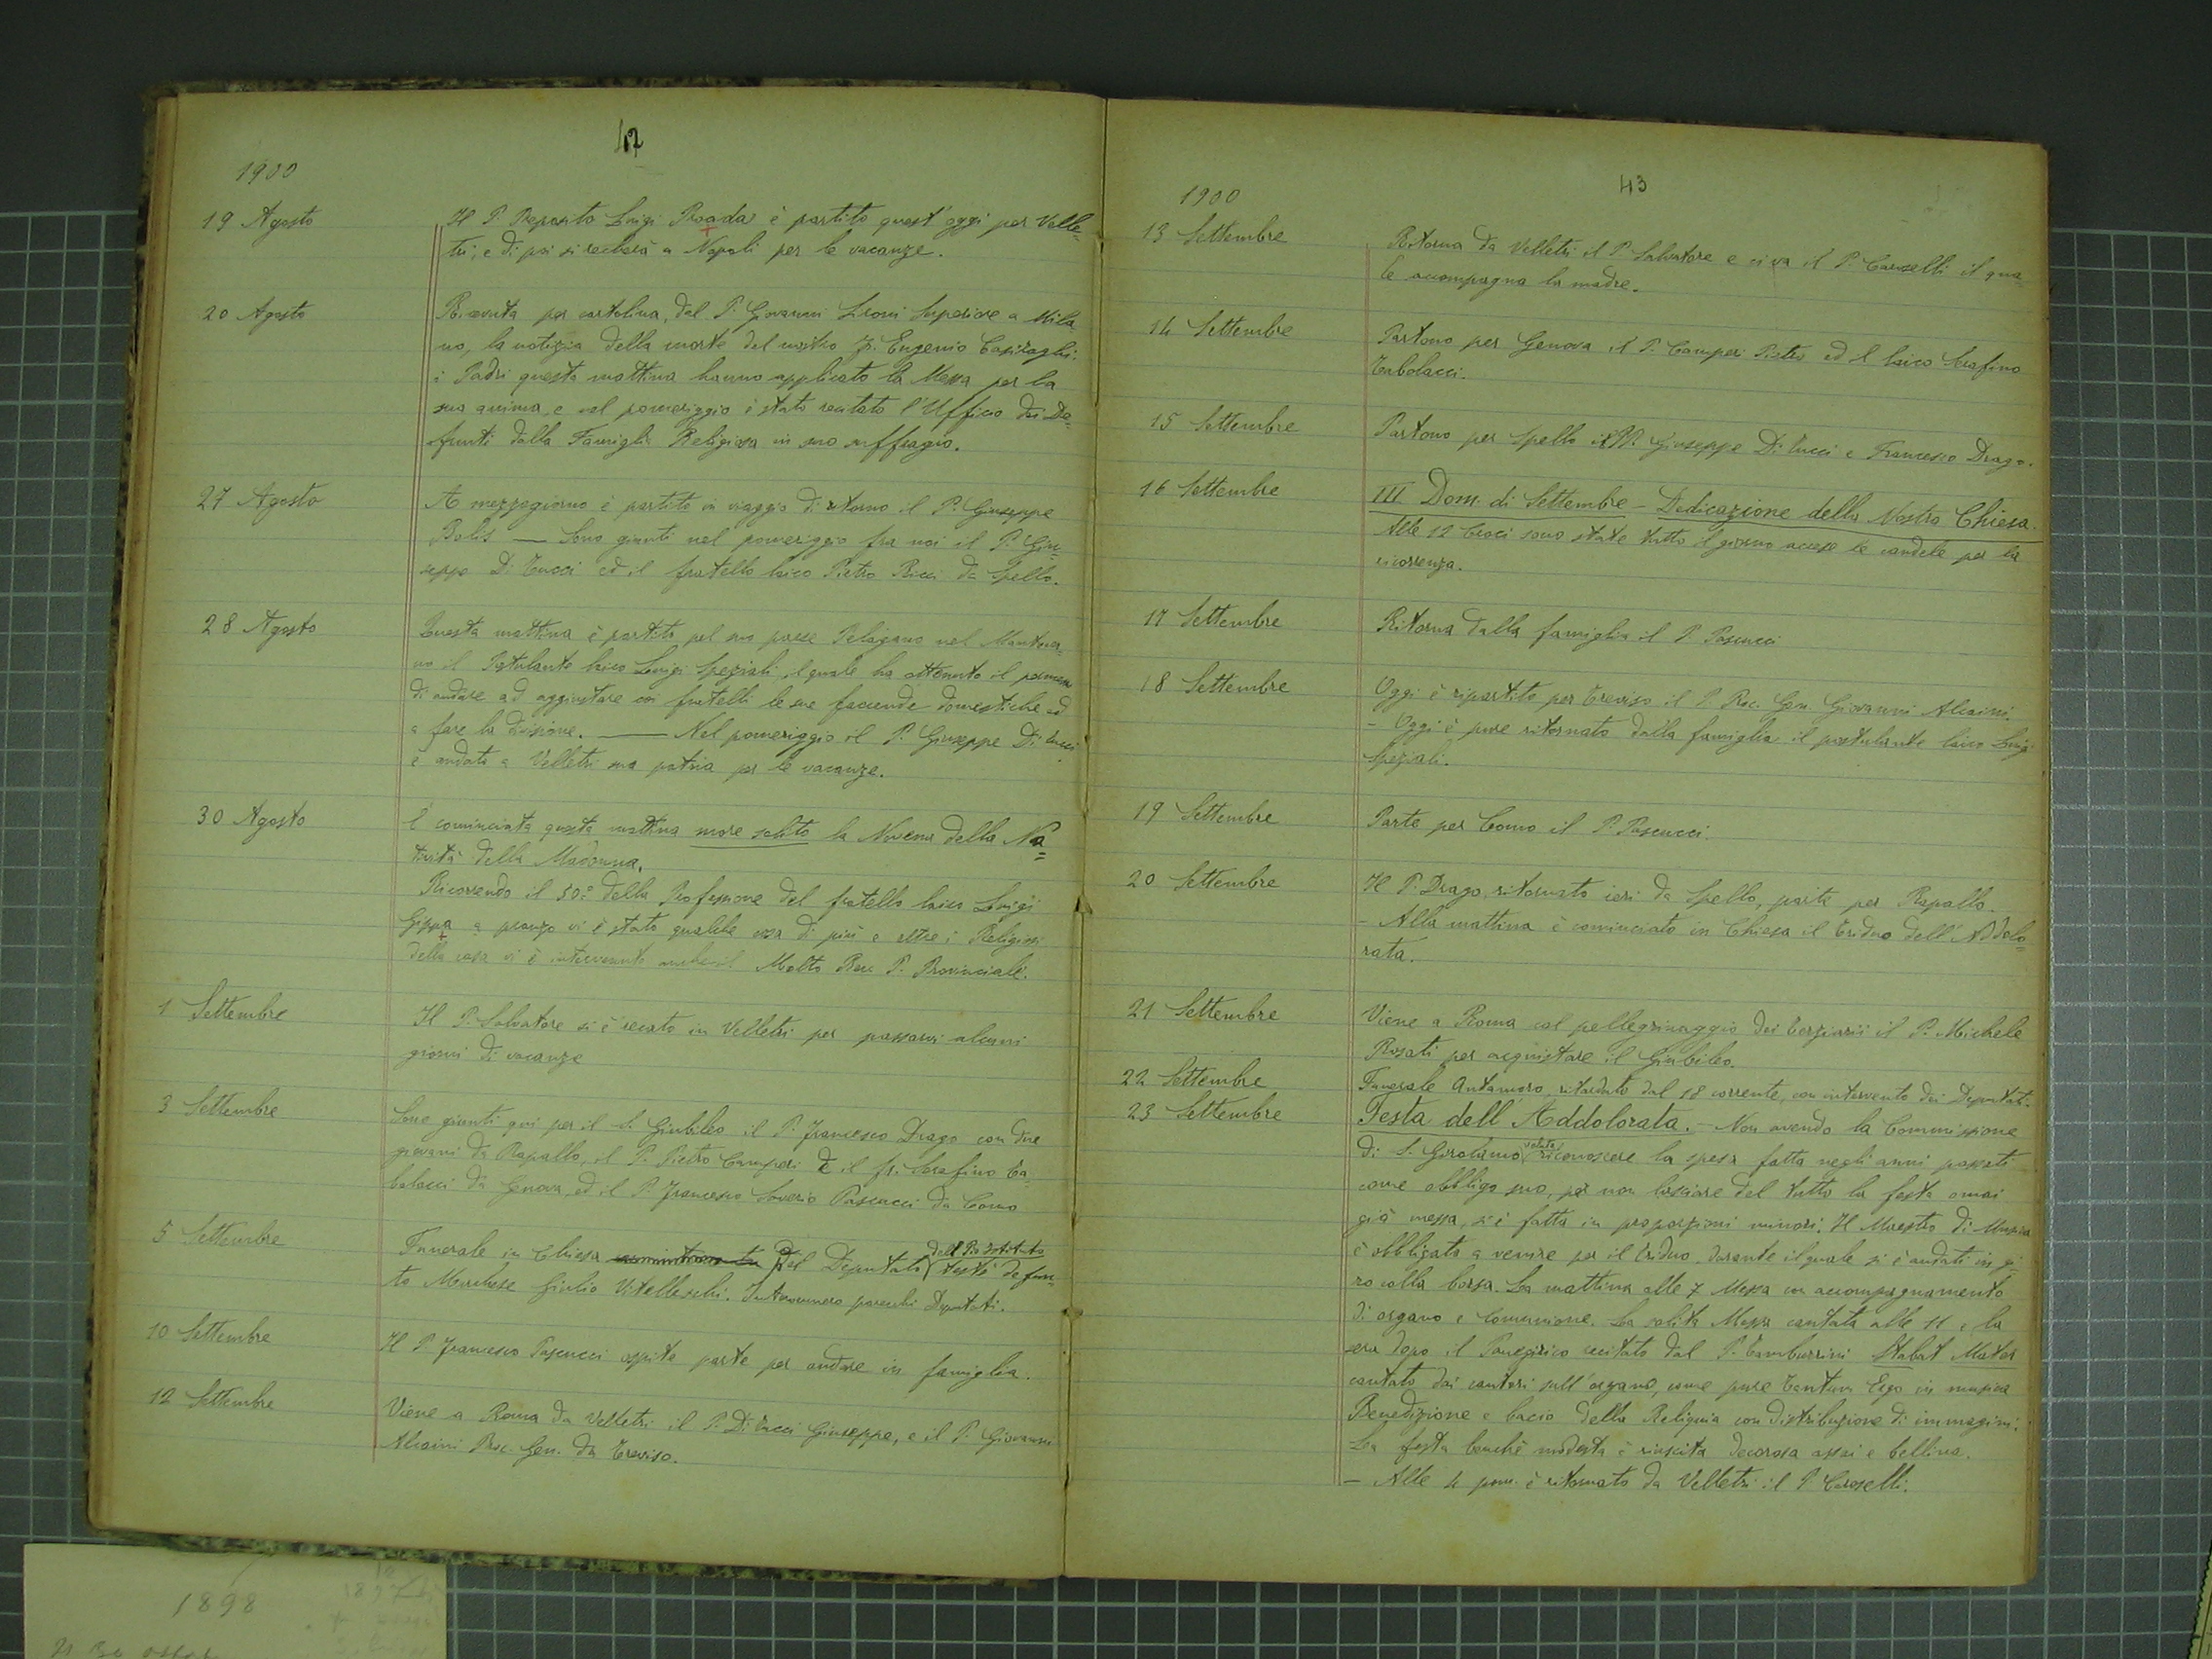 42
1900
19 Agosto
Il P. Preposto Luigi Procida è partito quest'oggi per Velle=
tri, e di poi si recherà a Napoli per le vacanze.
20 Agosto
Ricevuta per cartolina, dal P. Giovanni Zironi Superiore a Mila
no, la notizia della morte del nostro fr. Eugenio Casiraghi;
i Padri questa mattina hanno applicato la Messa per la
sua anima, e nel pomeriggio è stato recitato l'Ufficio dei De=
funti dalla Famiglia Religiosa in suo suffragio.
27 Agosto
A mezzogiorno è partito in viaggio di ritorno il P. Giuseppe
Bolis — Sono giunti nel pomeriggio fra noi il P. Giu=
seppe Di Tucci ed il fratello laico Pietro Ricci da Spello.
28 Agosto
Questa mattina è partito pel suo paese nel Mantova=
no il Postulante laico Luigi Speziali, il quale ha ottenuto il permesso
di andare ad aggiustare coi fratelli le sue faccende domestiche ed
a fare la divisione. — Nel pomeriggio il P. Giuseppe Di Tucci
è andato a Velletri sua patria per le vacanze.
30 Agosto
È cominciata questa mattina more solito la Novena della Na=
tività della Madonna.
Ricorrendo il 50.º della Professione del fratello laico Luigi
a pranzo vi è stato qualche cosa di più e oltre i Religiosi
della casa vi è intervenuto anche il Molto Rev. P. Provinciale.
1 Settembre
Il P. Salvatore si è recato in Velletri per passarvi alcuni
giorni di vacanze
3 Settembre
Sono giunti qui per il S. Giubileo il P. Francesco Drago con due
giovani da Rapallo, il P. Pietro Camperi e il fr. Serafino Ta=
bolacci da Genova, ed il P. Francesco Saverio Pascucci da Como
5 Settembre
Funerale in Chiesa del Deputato dell Pio Istituto testé defun=
to Marchese Giulio Vitelleschi. Intervennero parecchi Deputati.
10 Settembre
Il P Francesco Pascucci ospite parte per andare in famiglia.
12 Settembre
Viene a Roma da Velletri il P. Di Tucci Giuseppe, e il P. Giovanni
Alcaini Proc. Gen. da Treviso.
43
1900
13 Settembre
Ritorna da Velletri il P. Salvatore e ci va il P. Caroselli il qua=
le accompagna la madre.
14 Settembre
Partono per Genova il P. Camperi Pietro ed il laico Serafino
Tabolacci.
15 Settembre
Partono per Spello i PP. Giuseppe Di Tucci e Francesco Drago.
16 Settembre
III Dom. di Settembre – Dedicazione della Nostra Chiesa.
Alle 12 Croci sono state tutto il giorno accese le candele per la
ricorrenza.
17 Settembre
Ritorna dalla famiglia il P. Pascucci
18 Settembre
Oggi è ripartito per Treviso il P. Proc. Gen. Giovanni Alcaini.
– Oggi è pure ritornato dalla famiglia il postulante laico Luigi
Speziali.
19 Settembre
Parte per Como il P. Pascucci.
20 Settembre
Il P. Drago, ritornato ieri da Spello, parte per Rapallo.
– Alla mattina è cominciato in Chiesa il Triduo dell'Addolo=
rata.
21 Settembre
Viene a Roma col pellegrinaggio dei Terziarii il P. Michele
Rosati per acquistare il Giubileo.
22 Settembre
Funerale Antamoro, ritardato dal 18 corrente, con intervento dei Deputati.
23 Settembre
Festa dell'Addolorata. – Non avendo la Commissione
di S. Girolamo voluto riconoscere la spesa fatta negli anni passati
come obbligo suo, per non lasciare del tutto la festa omai
già messa, si è fatta in proporzioni minori. Il Maestro di Musica
è obbligato a venire per il triduo, durante il quale si è andati in gi=
ro colla borsa. La mattina alle 7 Messa con accompagnamento
di organo e Comunione. La solita Messa cantata alle 11 e la
sera dopo il Panegirico recitato dal P. Tamburrini Stabat Mater
cantato dai cantori sull'organo, come pure Tantum Ergo in musica
Benedizione e bacio della Reliquia con distribuzione di immagini.
La festa benché modesta è riuscita decorosa assai e bellina.
– Alle 4 pom. è ritornato da Velletri il P. Caroselli.
1898